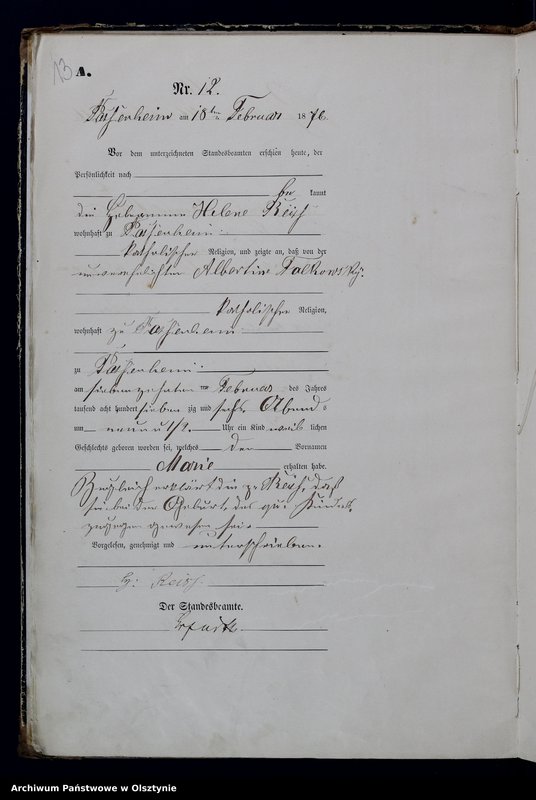 13
A.
Nr. 12.
Passenheim am 18ten Februar 1876
Vor dem unterzeichneten Standesbeamten erschien heute, der
Persönlichkeit nach
be kannt
die Hebamme Helene Reiß
wohnhaft zu Passenheim
katholischer Religion, und zeigte an, daß von der
unverehelichten Albertine Falkowsky
katholischer Religion,
wohnhaft zu Passenheim
zu Passenheim
am siebenzehnten ten Februar des Jahres
tausend acht hundert sieben zig und sechs Abends
um neun 1/2 Uhr ein Kind weib lichen
Geschlechts geboren worden sei, welches den Vornamen
Marie erhalten habe.
Zugleich erklärt die p. Reiß, daß
sie bei der Geburt des qu. Kindes
zugegen gewesen sei.
Vorgelesen, genehmigt und unterschrieben.
H: Reiss.
Der Standesbeamte.
Archiwum Państwowe w Olsztynie